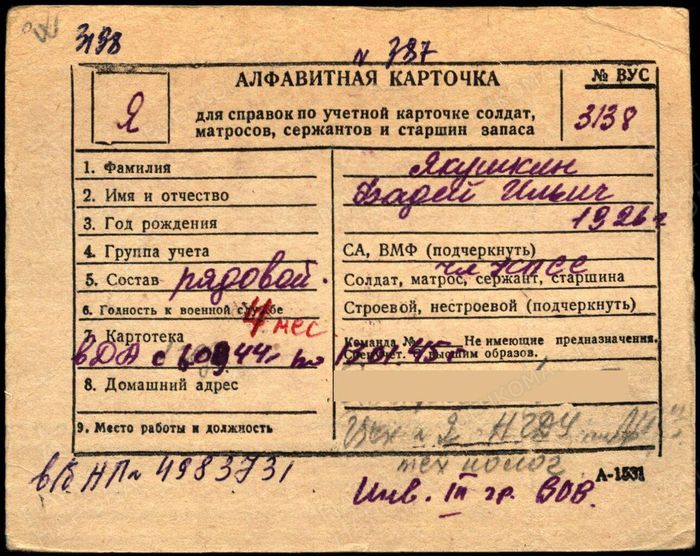 3138
N 387
Я
АЛФАВИТНАЯ КАРТОЧКА
для справок по учетной карточке солдат,
матросов, сержантов и старшин запаса
№ ВУС
3138
1. Фамилия Якушкин
2. Имя и отчество Фадей Ильич
3. Год рождения 1926 г
4. Группа учета СА, ВМФ (подчеркнуть)
чл КПСС
5. Состав рядовой. Солдат, матрос, сержант, старшина
6. Годность к военной службе Строевой, нестроевой (подчеркнуть)
4 мес
7. Картотека Команда № Не имеющие предназначения.
Спец. учет. С высшим образов.
в ДА с 1.09.44г по 45г
8. Домашний адрес
9. Место работы и должность Цех N 2 НГДУ
технолог
в/б НП N 4983731
А-1531
Инв. III гр. ВОВ.